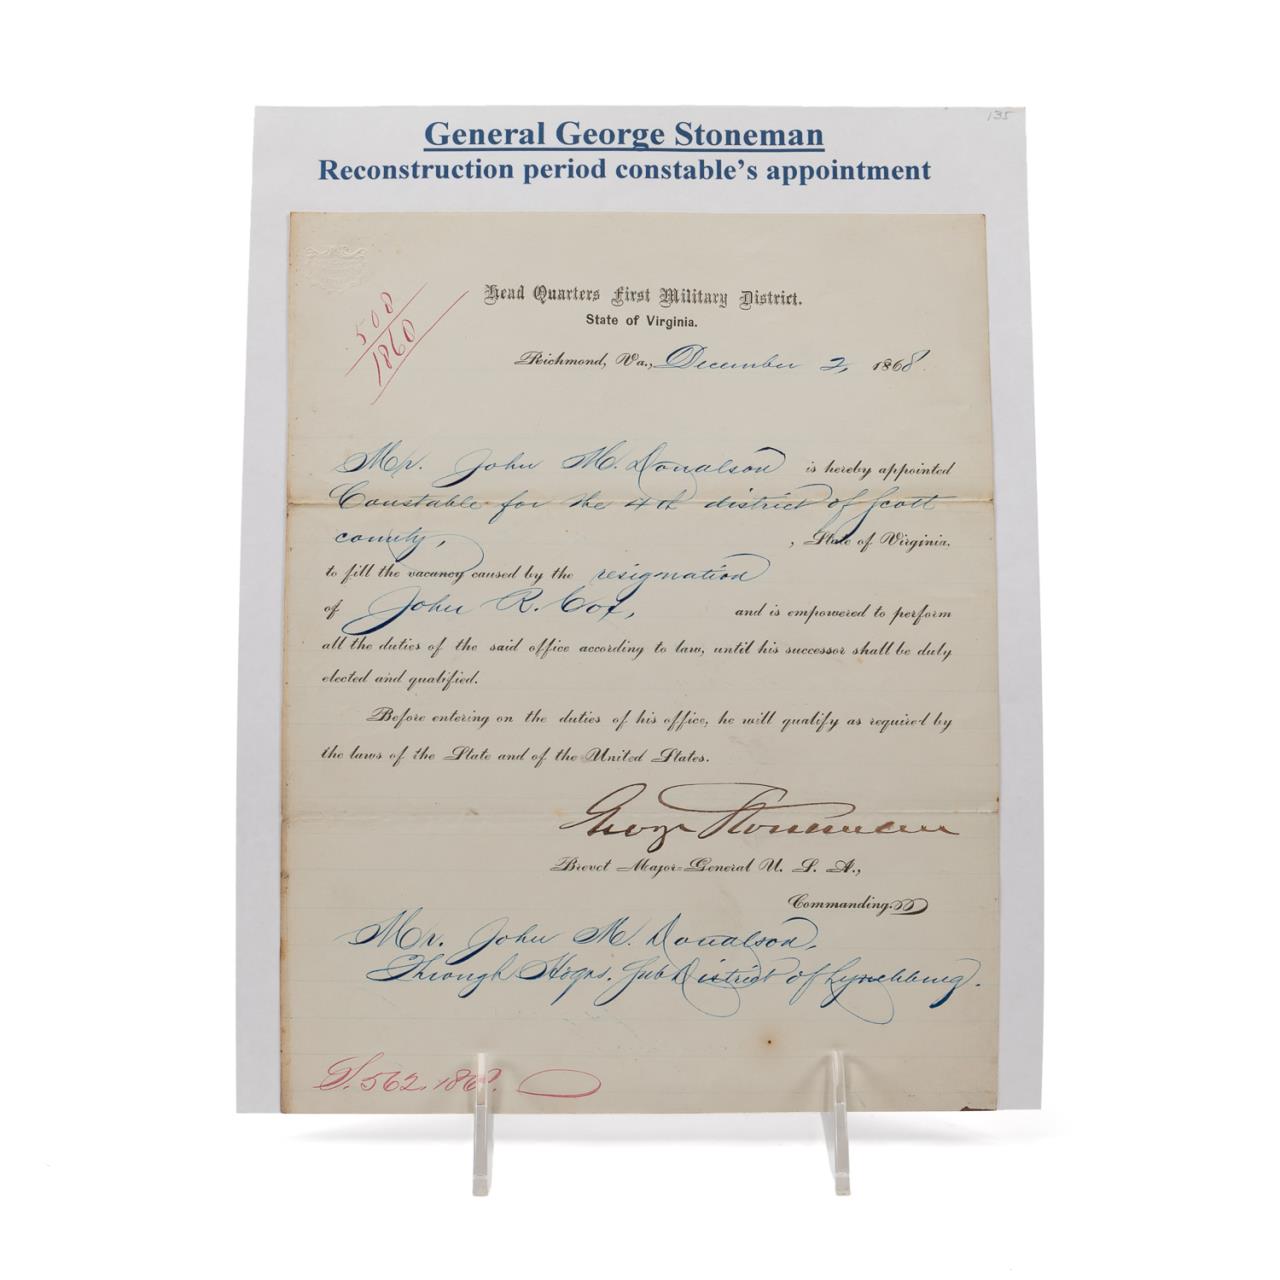 135
General George Stoneman
Reconstruction period constable's appointment
508
1860
Head Quarters First Military District.
State of Virginia.
Richmond, Va., December 2, 1868.
Mr. John M. Donalson is hereby appointed
Constable for the 4th district of Scott
county, , State of Virginia,
to fill the vacancy caused by the resignation
of John R. Cox, and is empowered to perform
all the duties of the said office according to law, until his successor shall be duly
elected and qualified.
Before entering on the duties of his office, he will qualify as required by
the laws of the State and of the United States.
George Stoneman
Brevet Major-General U. S. A.,
Commanding.
Mr. John M. Donalson,
Through Hdqrs. Sub District of Lynchburg.
S. 562. 1868.